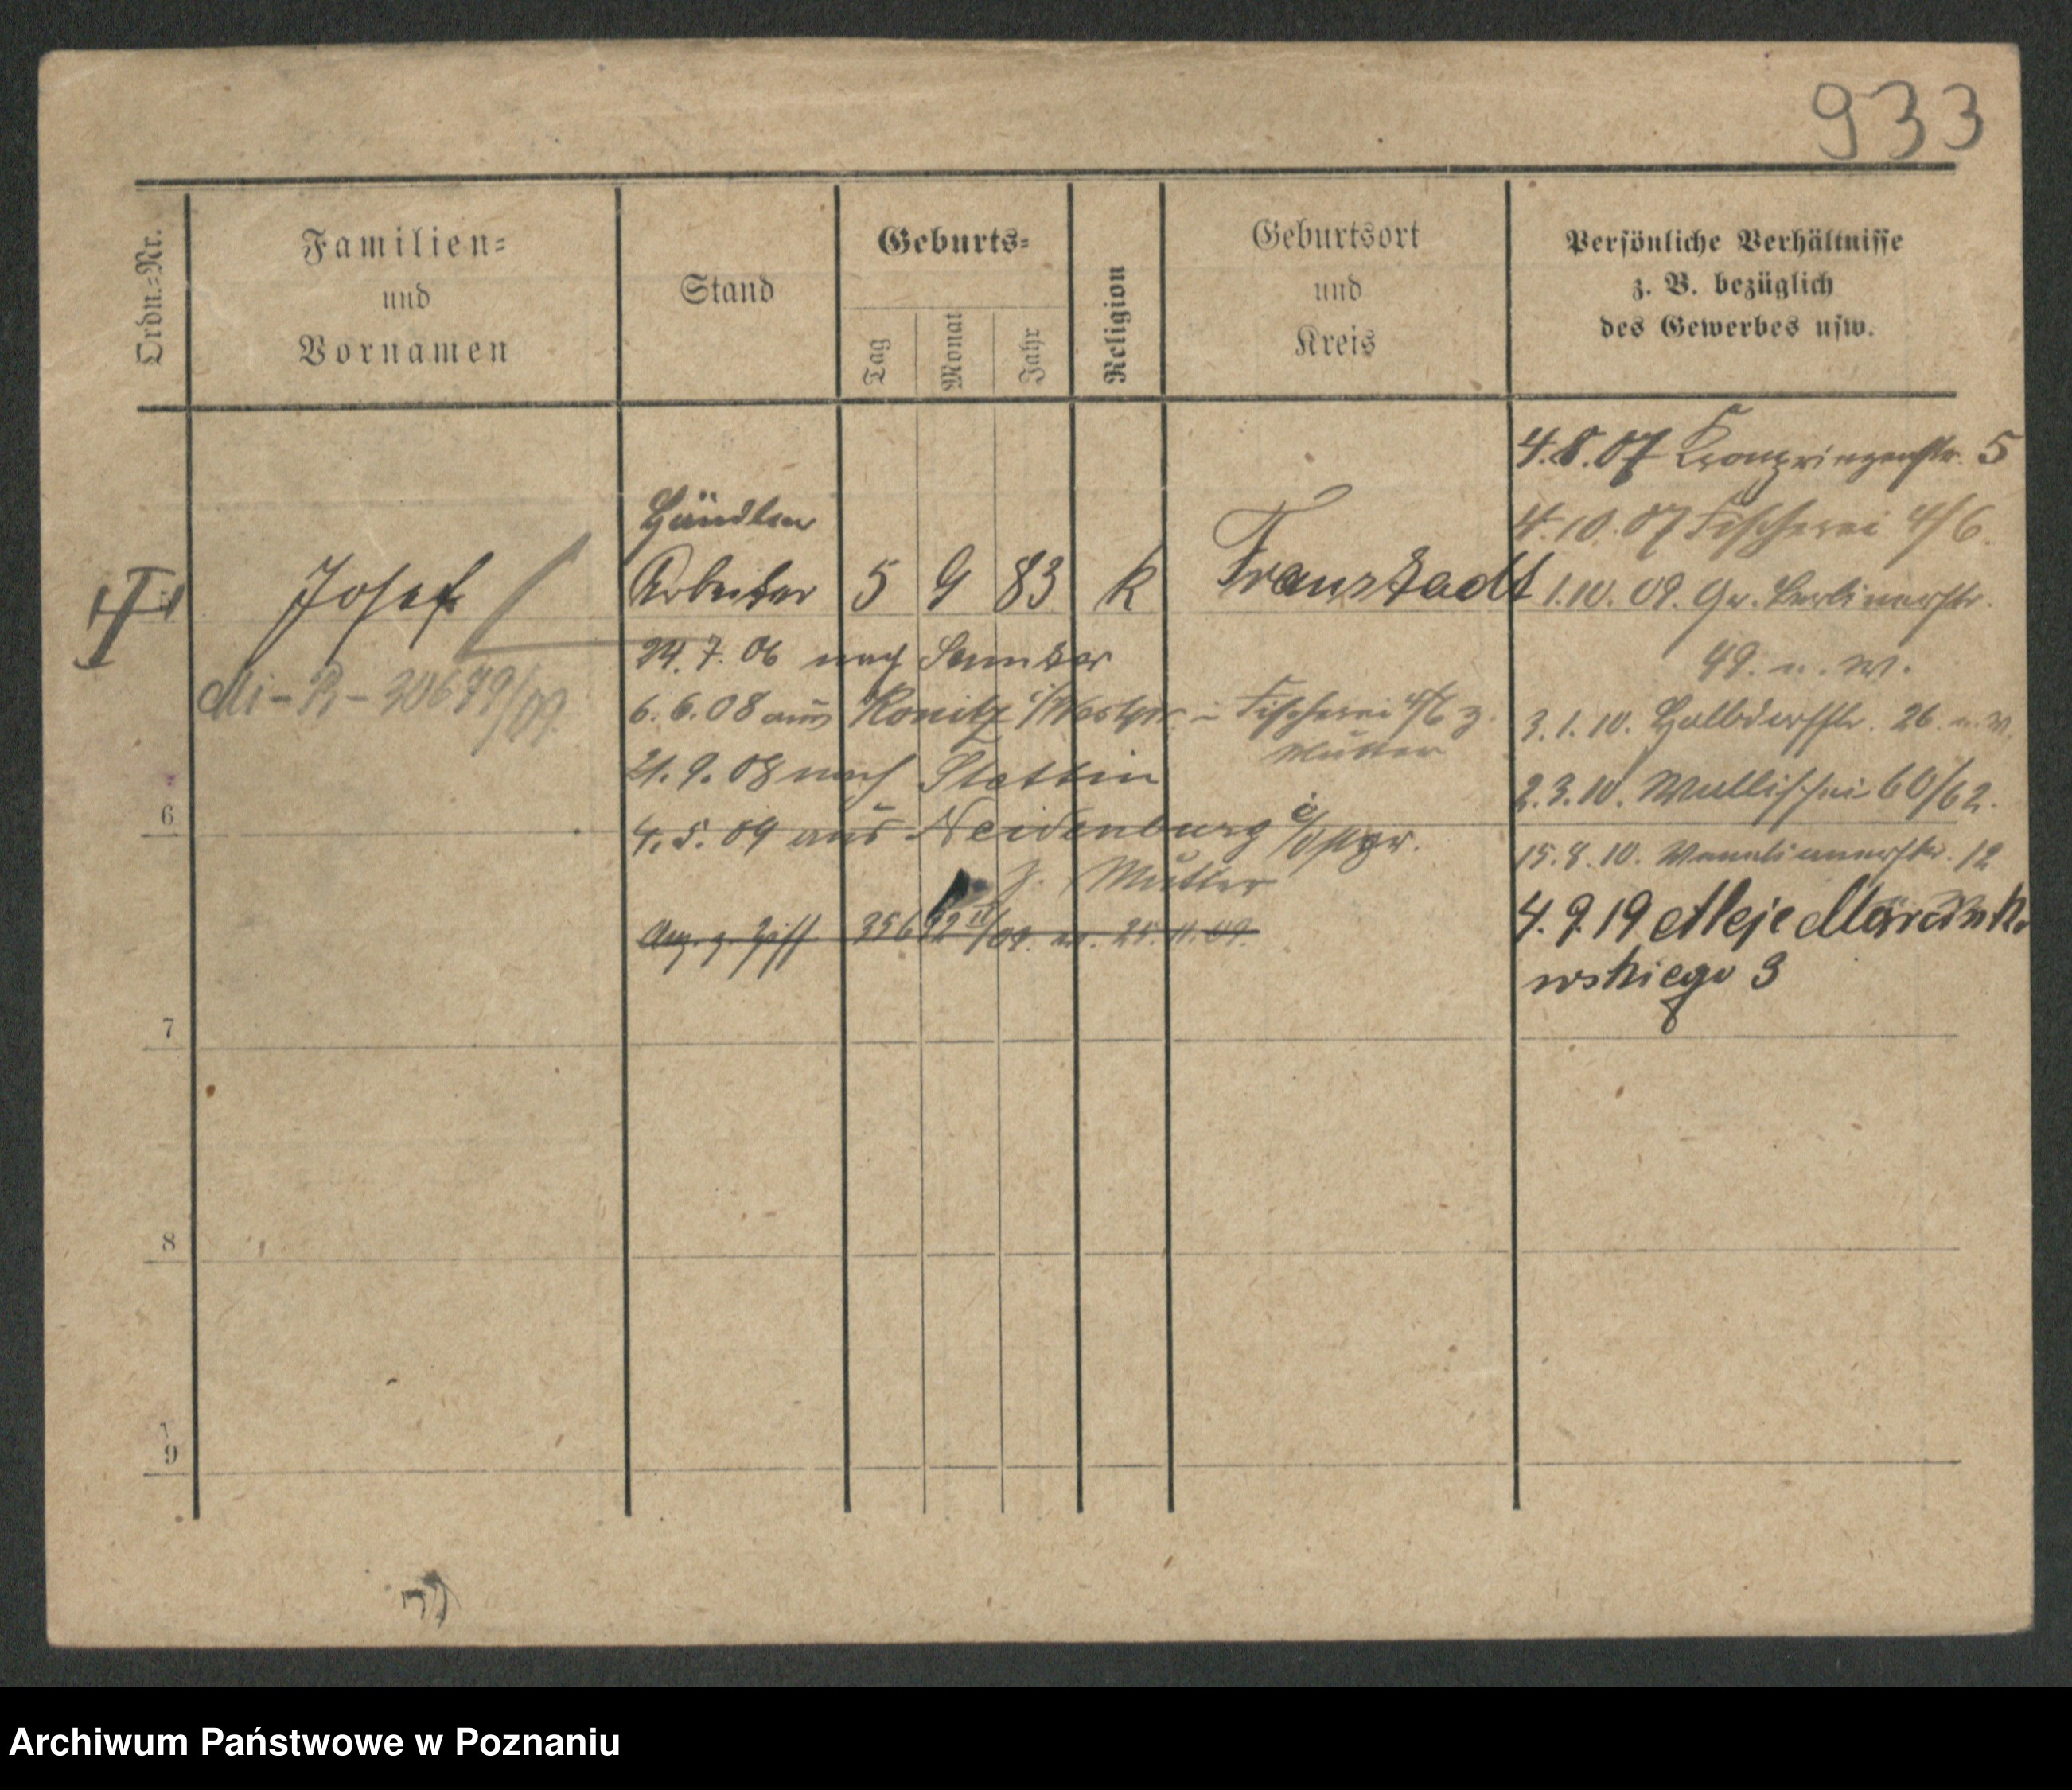 933
Ordn.-Nr.
Familien-
und
Vornamen
Stand
Geburts-
Tag
Monat
Jahr
Religion
Geburtsort
und
Kreis
Persönliche Verhältnisse
z. B. bezüglich
des Gewerbes usw.
Händler
Josef
Arbeiter 5 9 83 k Fraustadt
24.7.06 nach Samter
6.6.08 aus Konitz i/Westpr. – Fischerei 4/6 z.
Mutter
21.9.08 nach Stettin
4.5.09 aus Neidenburg i/Ospr.
z. Mutter
35692 II/09. 25.11.09.
4.8.07 Kronprinzenstr. 5
4.10.07 Fischerei 4/6.
1.10.09. Gr. Berlinerstr.
49. n. W.
3.1.10. 26 n. W.
2.3.10. Wallischei 60/62.
15.8.10. 12
4.9.19 Aleje Marcinko
wskiego 3
6
7
8
9
Archiwum Państwowe w Poznaniu